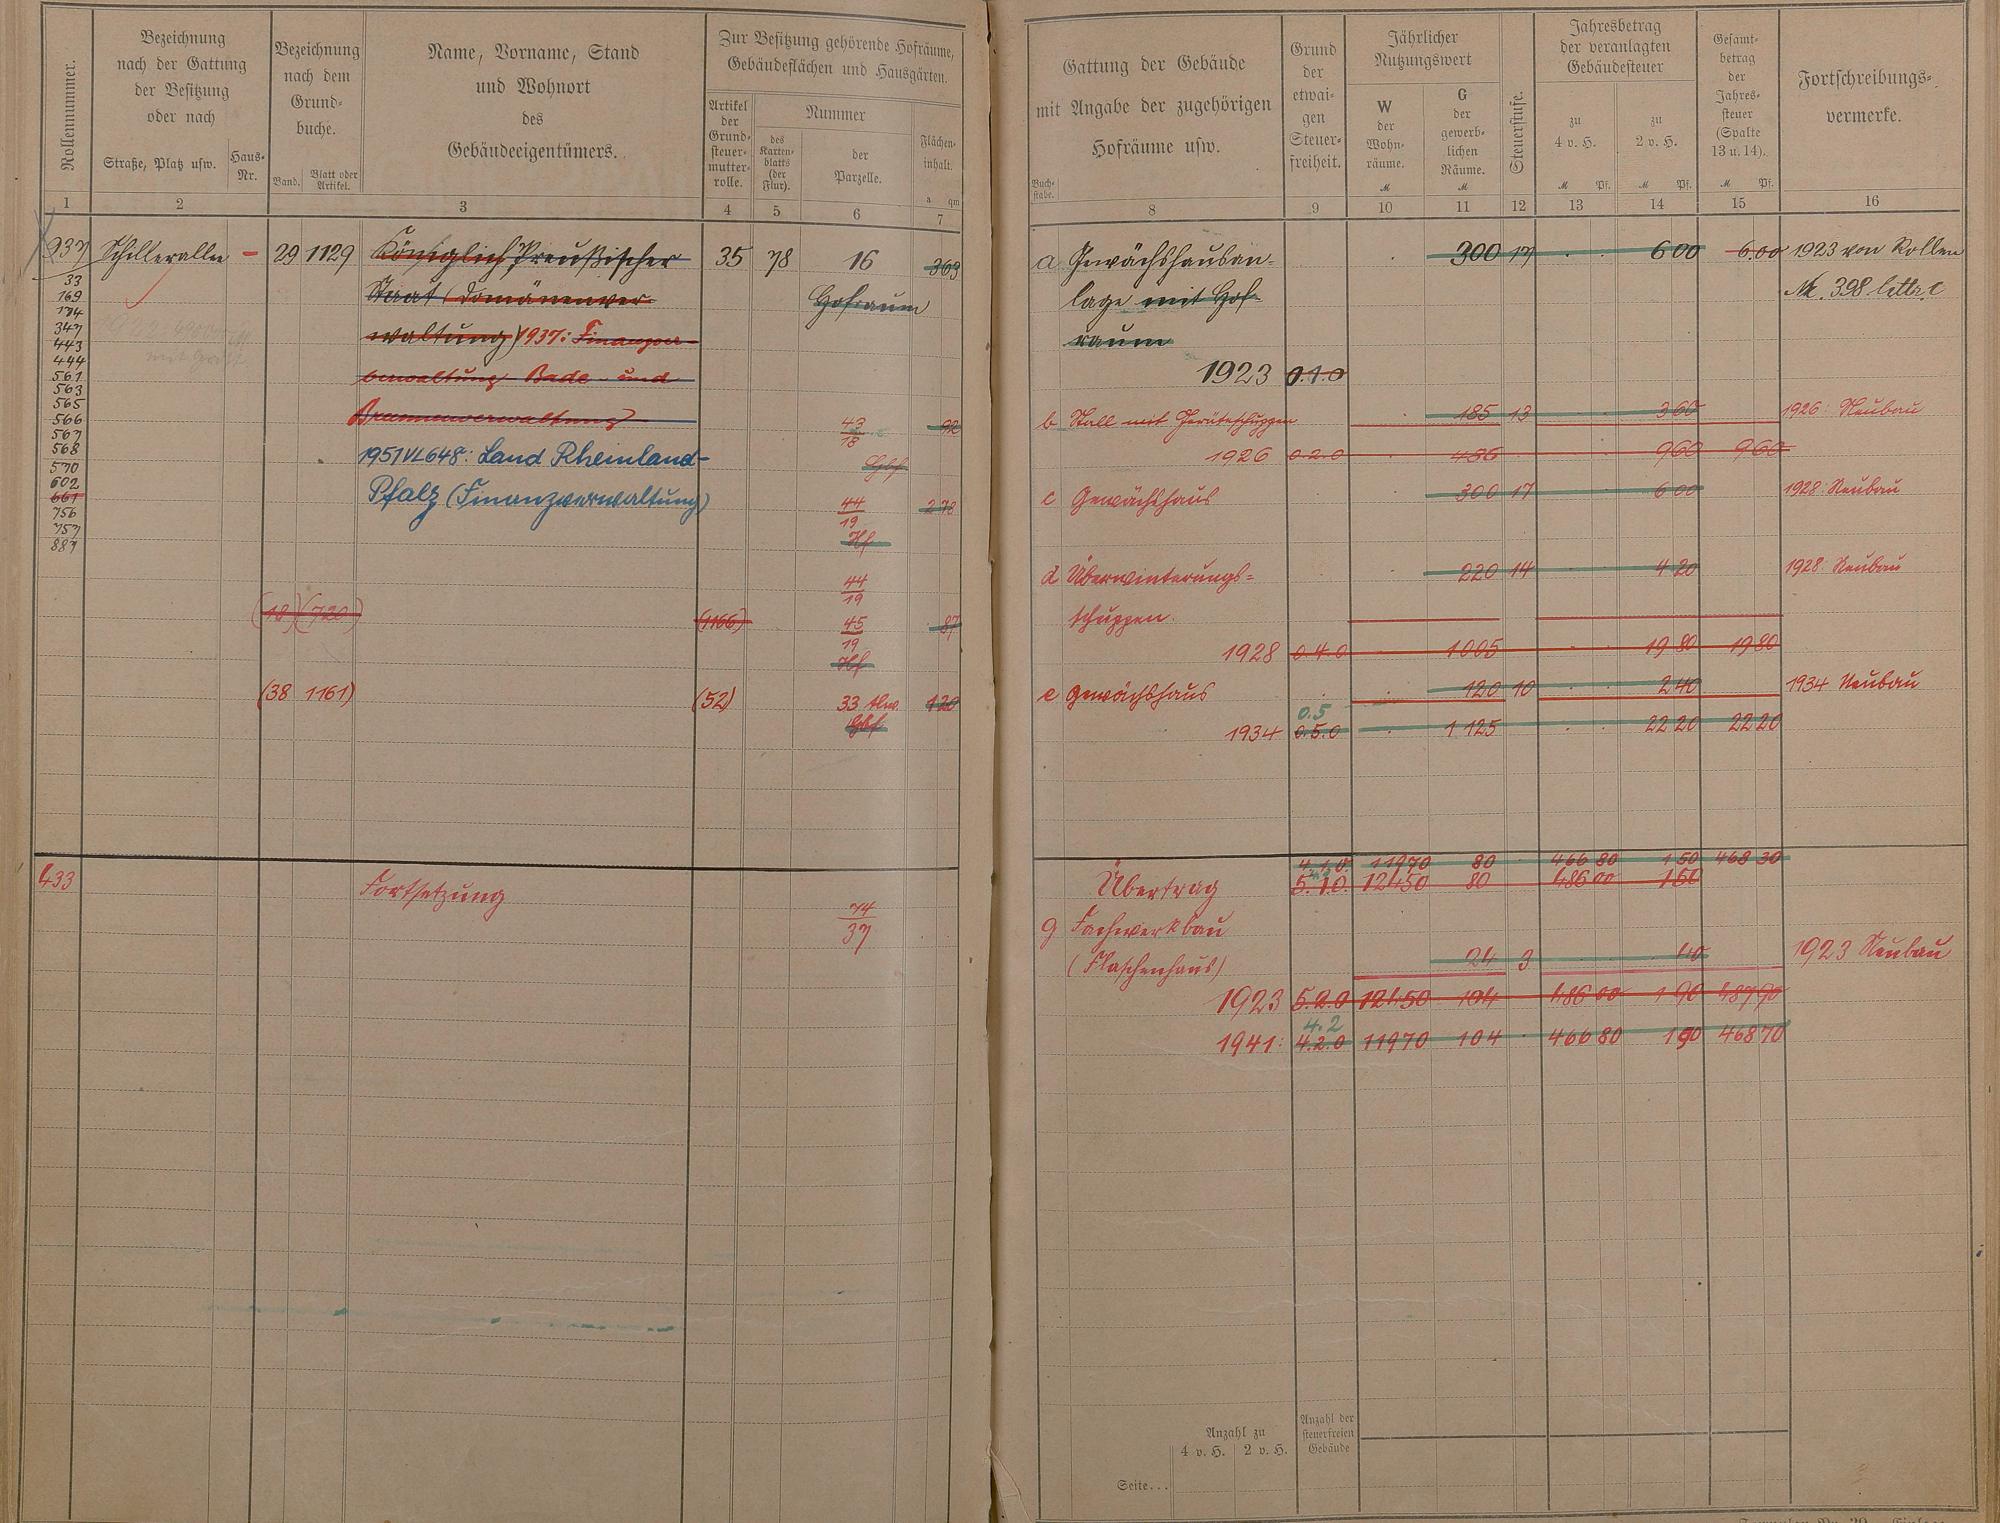 Rollennummer.
Bezeichnung
nach der Gattung
der Besitzung
oder nach
Straße, Platz usw.
Haus-
Nr.
Bezeichnung
nach dem
Grund-
buche.
Band.
Blatt oder
Artikel.
Name, Vorname, Stand
und Wohnort
des
Gebäudeeigentümers.
Zur Besitzung gehörende Hofräume,
Gebäudeflächen und Hausgärten.
Artikel
der
Grund-
steuer-
mutter-
rolle.
Nummer
des
Karten-
blatts
(der
Flur).
der
Parzelle.
Flächen-
inhalt.
a qm
1 2 3 4 5 6 7
937 Schillerallee – 29 1129 Königlich Preußischer 35 78 16 363
Staat (Domänenver- Hofraum
waltung) 1937: Finanzver-
verwaltung Bade- und
Brunnenverwaltung)
1951 VL 648: Land Rheinland-
Pfalz (Finanzverwaltung)
33
169
174
347
443
444
561
563
565
566
567
568
570
602
661
756
757
887
43/18 92
Gbf
44/19 273
Hf
44/19
(18) (720) (1166) 45/19 87
Hf
(38 1161) (52) 33 120
Gbf
433 Fortsetzung
74/37
Gattung der Gebäude
mit Angabe der zugehörigen
Hofräume usw.
Buch-
stabe.
Grund
der
etwai-
gen
Steuer-
freiheit.
Jährlicher
Nutzungswert
W
der
Wohn-
räume.
M
G
der
gewerb-
lichen
Räume.
M
Steuerstufe.
Jahresbetrag
der veranlagten
Gebäudesteuer
zu
4 v. H.
M Pf.
zu
2 v. H.
M Pf.
Gesamt-
betrag
der
Jahres-
steuer
(Spalte
13 u. 14).
M Pf.
Fortschreibungs-
vermerke.
8 9 10 11 12 13 14 15 16
a Gewächshausan- 300 17 6 00 6.00 1923 von Rollen
lage mit Hof- Nr. 398 littr. c
raum
1923 0.1.0
b Stall mit Geräteschuppen 185 13 3 60 1926: Neubau
1926 0.2.0 485 9 60 9 60
c Gewächshaus 300 17 6 00 1928: Neubau
d Überwinterungs- 220 14 4 20 1928: Neubau
schuppen.
1928 0.4.0 1005 19 80 19 80
e Gewächshaus 120 10 2 40 1934 Neubau
0.5
1934 0.5.0 1 125 22 20 22 20
4.1.0. 11970 80 466 80 1 50 468 30
Übertrag 5.1.0. 12450 80 486 00 1 50
g Fachwerkbau
(Flaschenhaus) 24 3 40 1923 Neubau
1923 5.2.0 12450 104 486 00 1 90 487 90
4.2
1941: 4.2.0 11970 104 466 80 1 90 468 70
Anzahl zu
4 v. H. 2 v. H.
Anzahl der
steuerfreien
Gebäude
Seite...